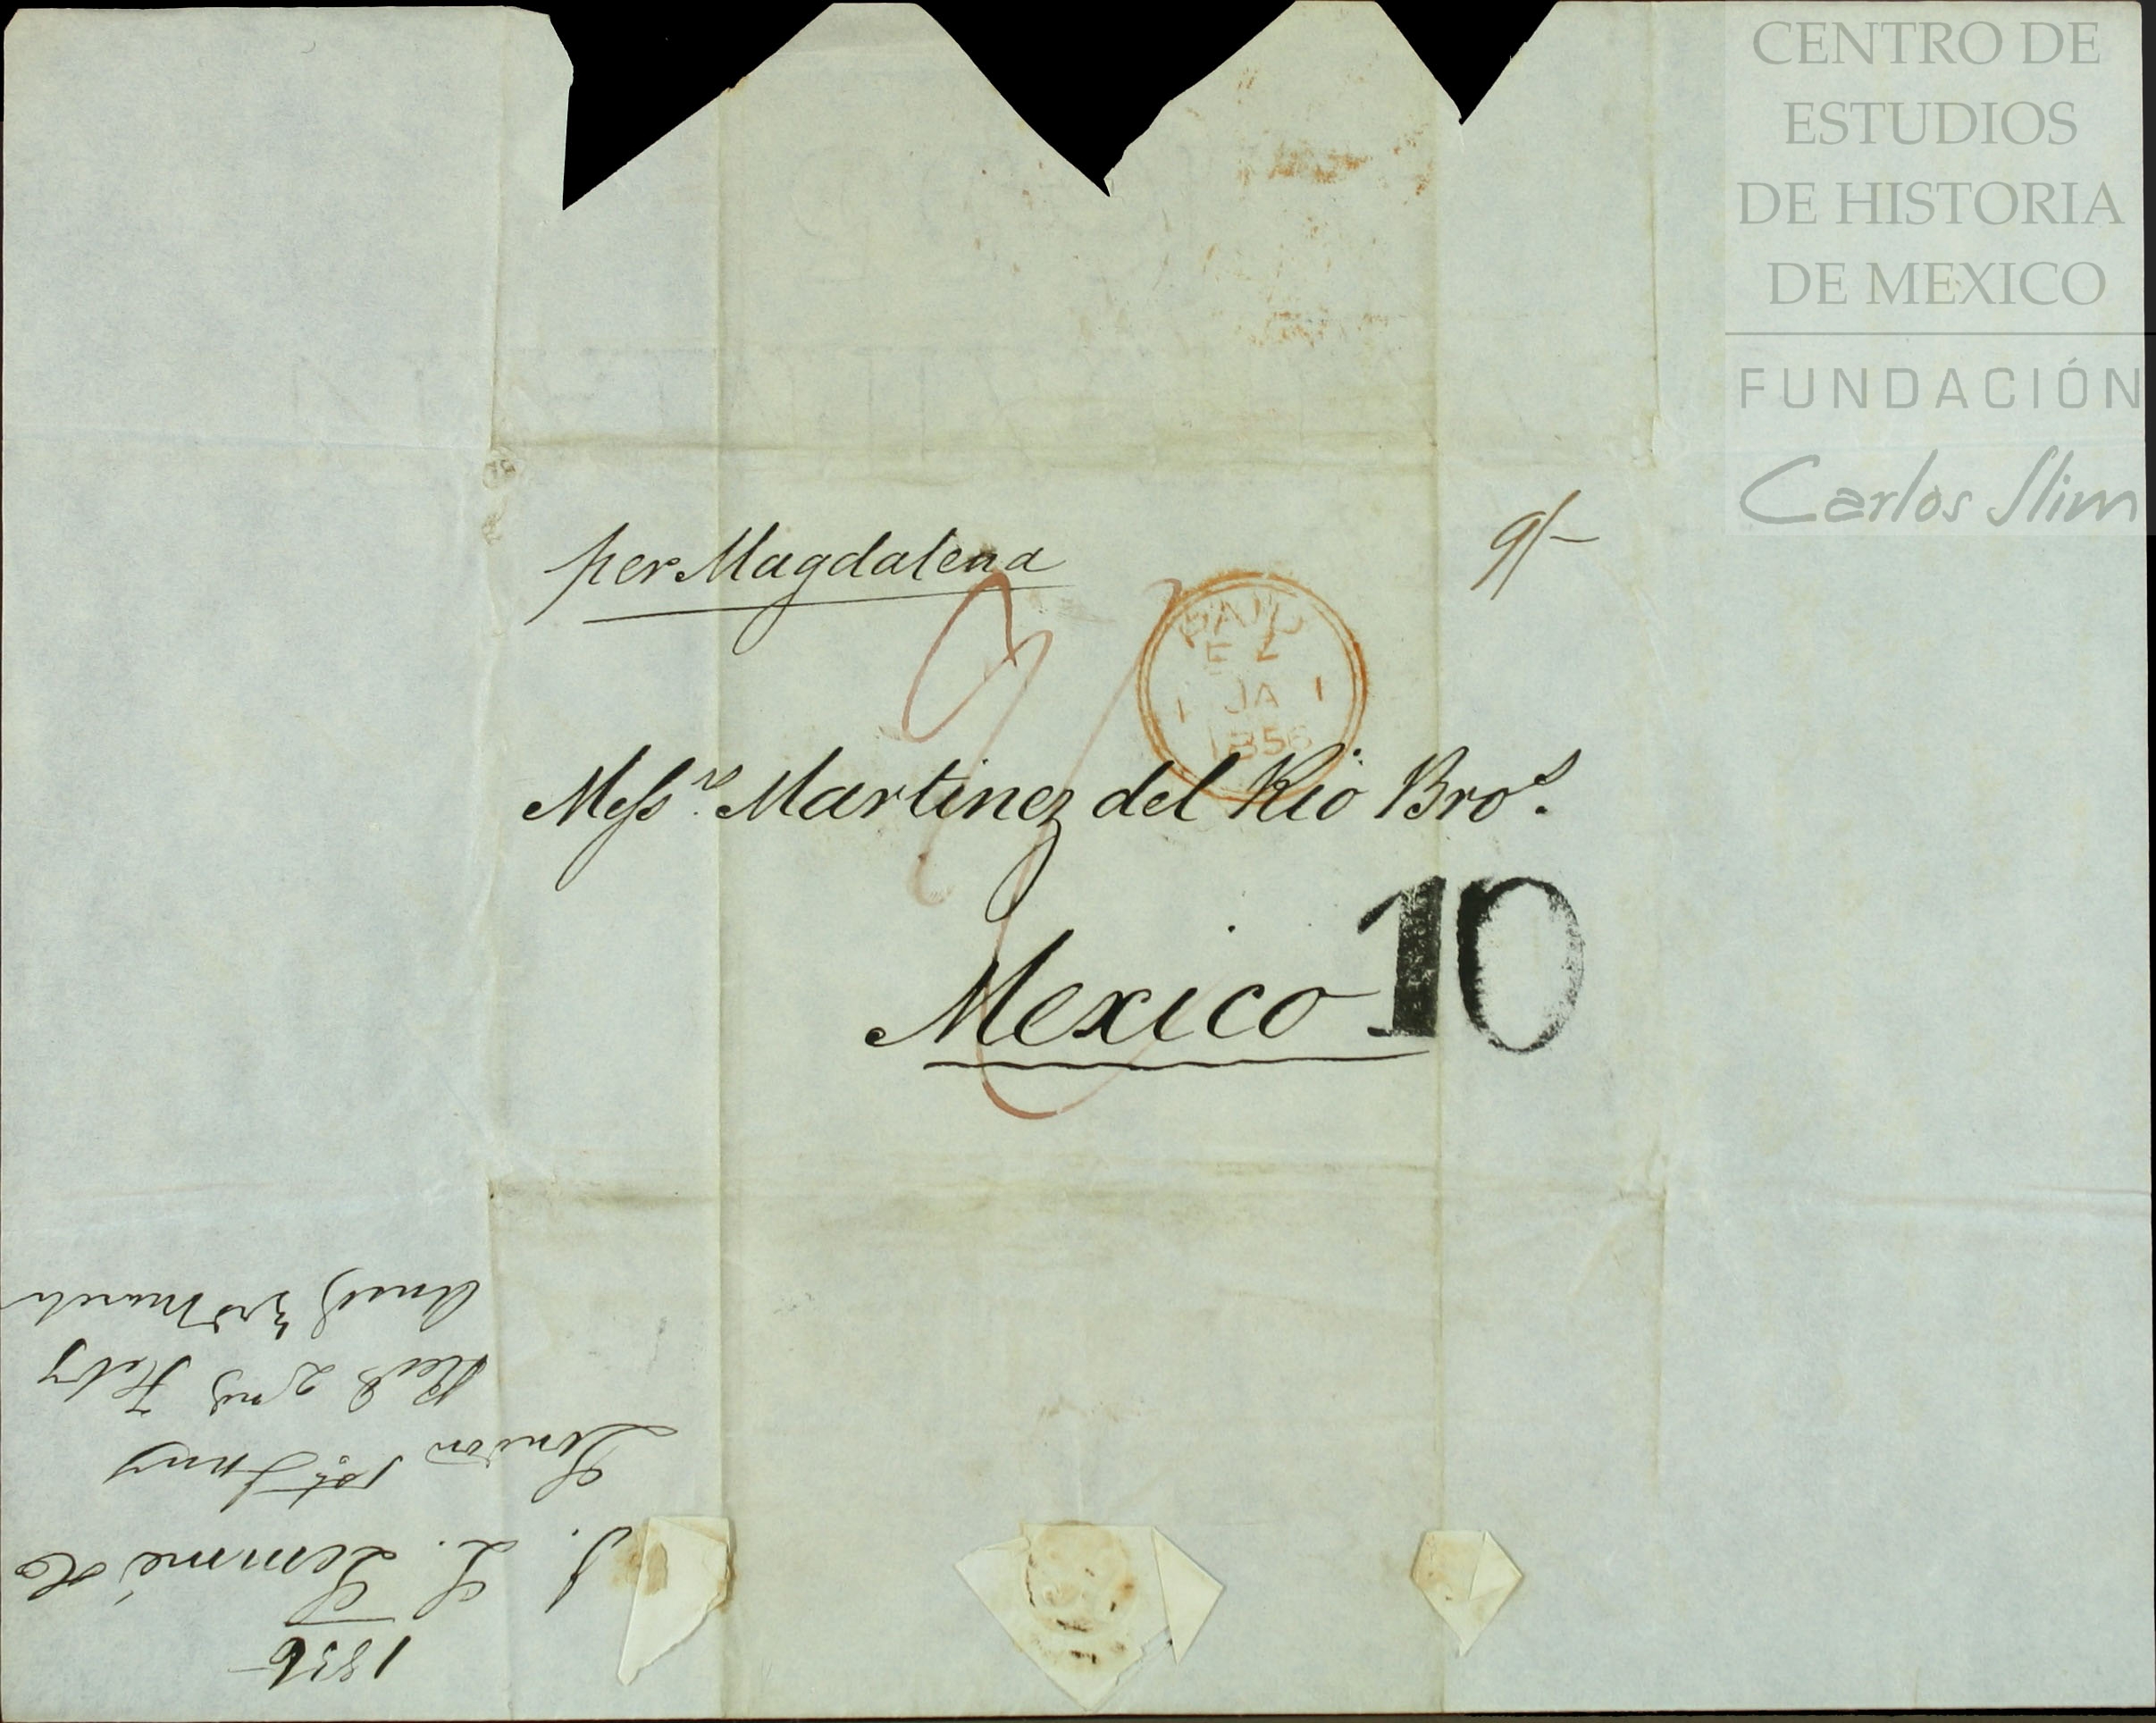 CENTRO DE
ESTUDIOS
DE HISTORIA
DE MEXICO
FUNDACIÓN
Carlos Slim
per Magdalena
9/-
PAID
EZ
1 JA 1
1856
Messrs. Martinez del Rio Bros.
Mexico
10
1856
J. L. Lemmé & Co
London 1st Jany
Recd 2nd Feby
Ansd 3rd March